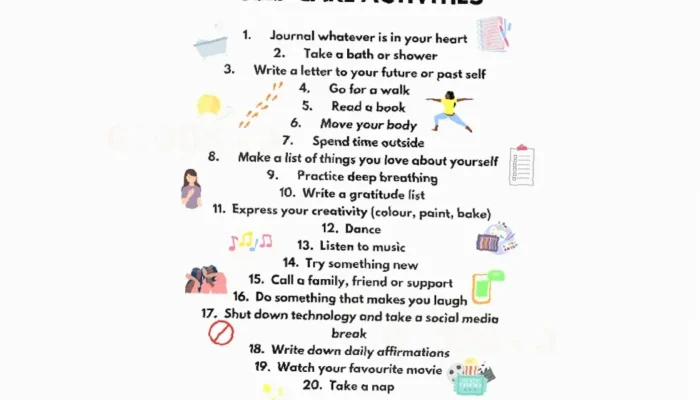 CARE ACTIVITIES
1. Journal whatever is in your heart
2. Take a bath or shower
3. Write a letter to your future or past self
4. Go for a walk
5. Read a book
6. Move your body
7. Spend time outside
8. Make a list of things you love about yourself
9. Practice deep breathing
10. Write a gratitude list
11. Express your creativity (colour, paint, bake)
12. Dance
13. Listen to music
14. Try something new
15. Call a family, friend or support
16. Do something that makes you laugh
17. Shut down technology and take a social media
break
18. Write down daily affirmations
19. Watch your favourite movie
20. Take a nap